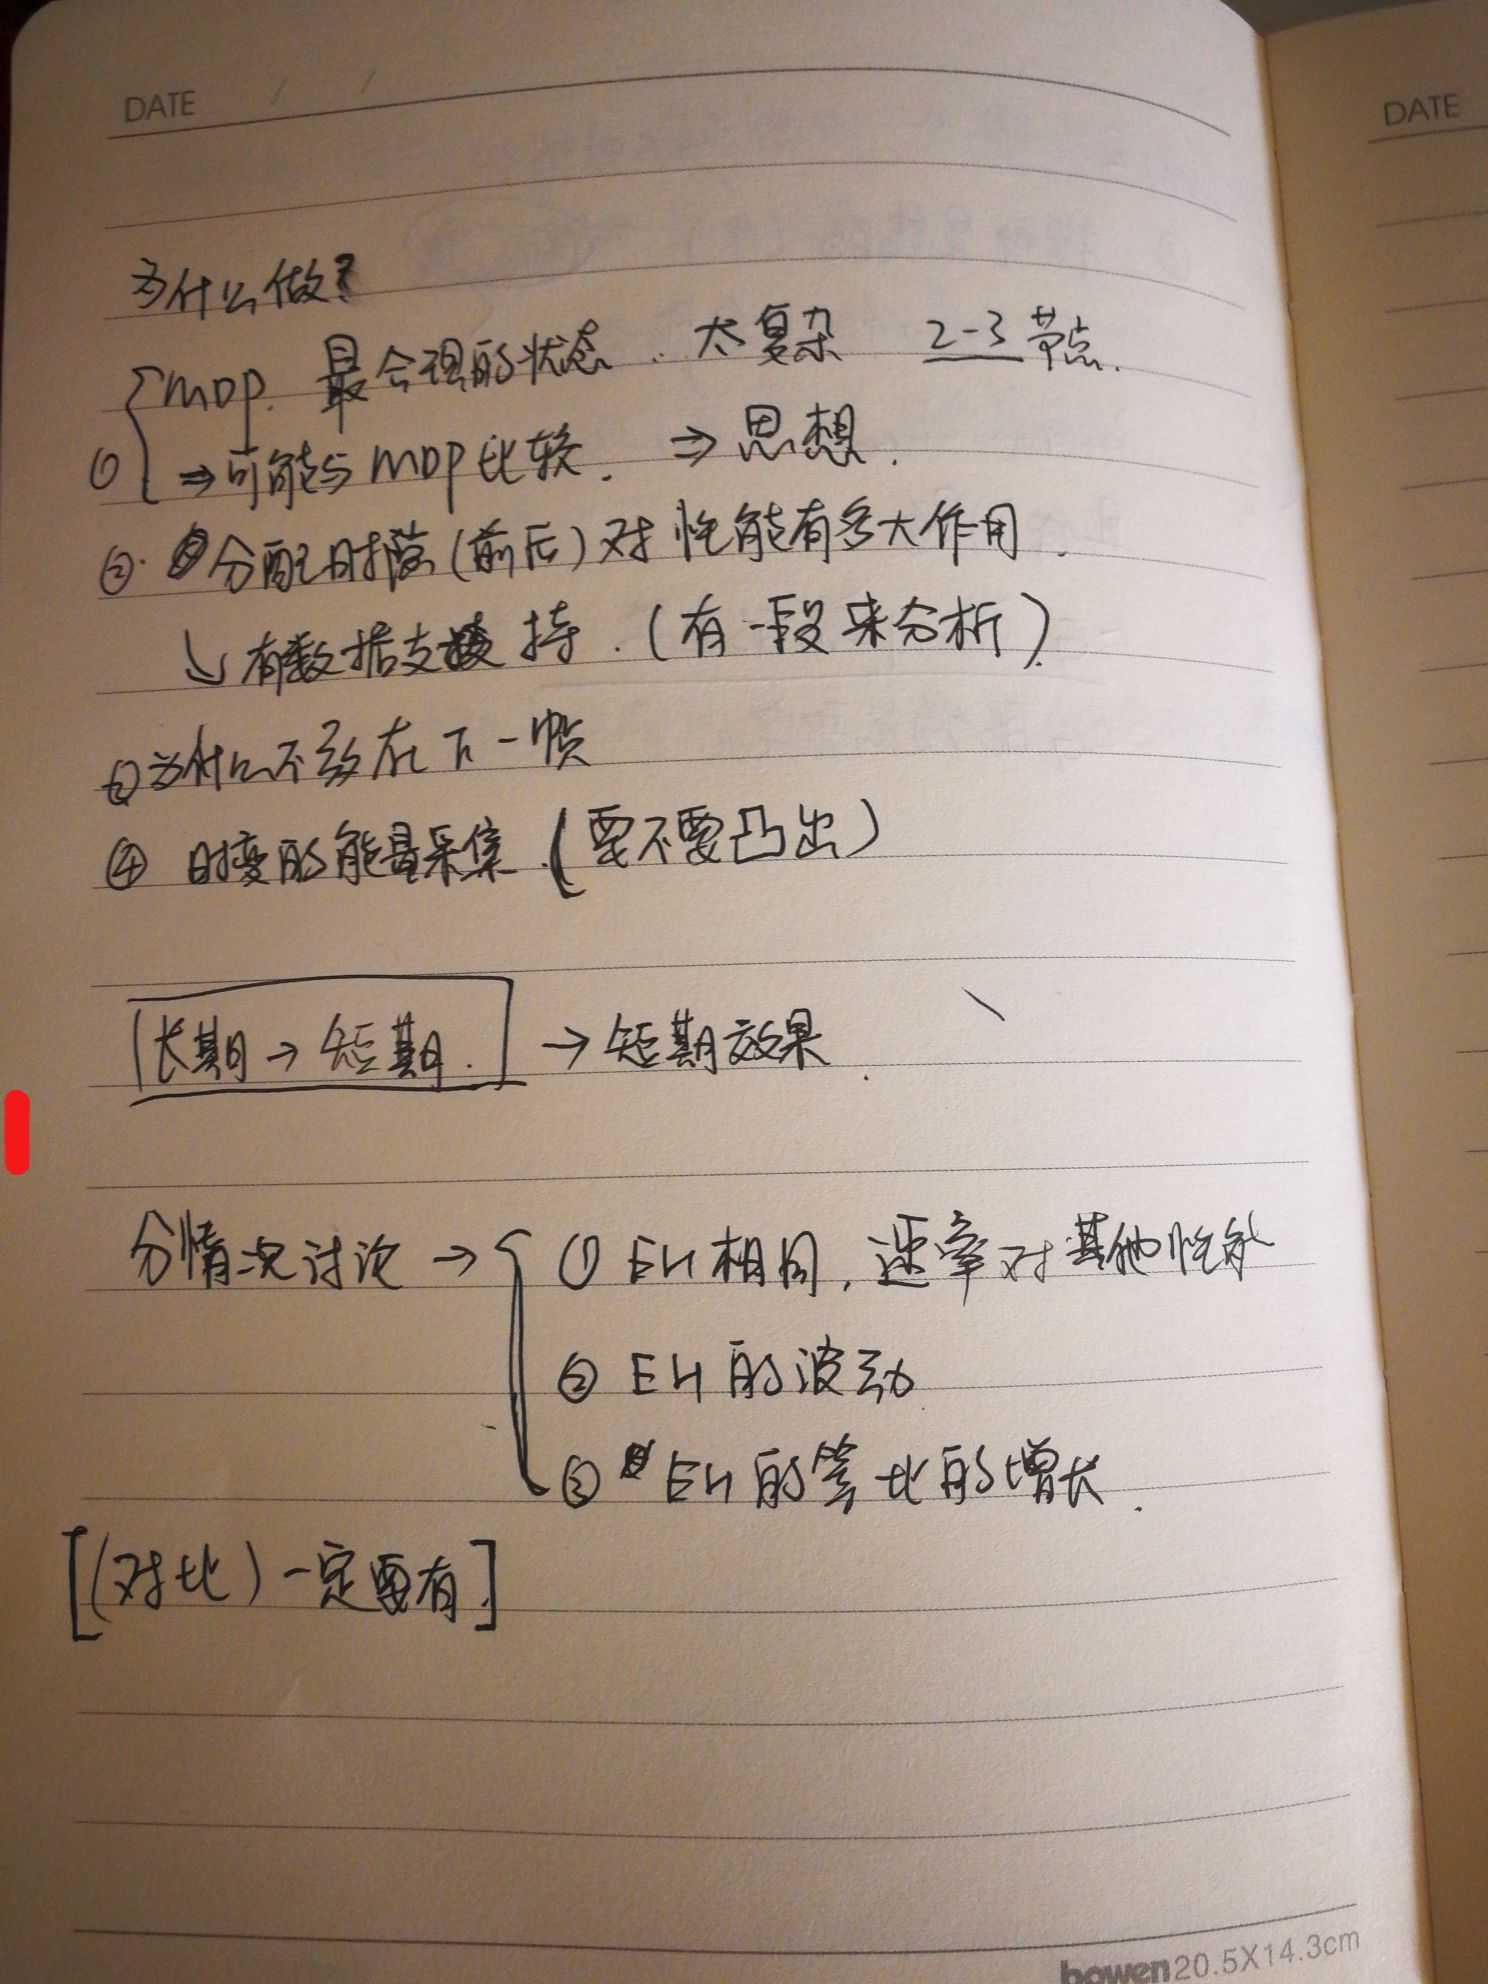 DATE / /
DATE
为什么做?
① { MDP. 最合理的状态. 太复杂 2-3 节点.
⇒可能与MDP比较. ⇒思想.
②. 分配时隙(前后)对性能有多大作用.
↘有数据支持.(有一段来分析).
③为什么不放在下一帧
④ 时变的能量采集.(要不要凸出)
长期→短期. →短期效果.
分情况讨论→{ ①EH相同,速率对其他性能
②EH的波动
③EH的等比的增长.
[(对比)一定要有]
bowen 20.5X14.3cm